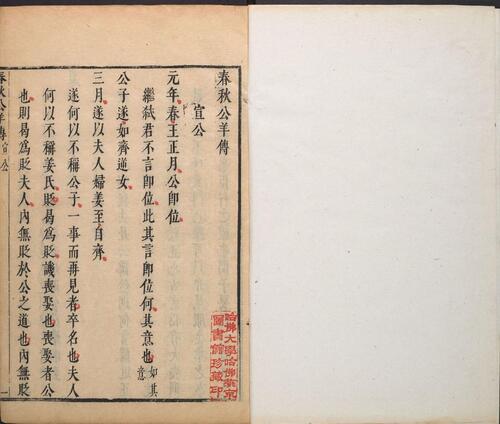 春秋公羊傳
宣公
元年春王正月公即位
繼弒君不言即位此其言即位何其意也如其
意
公子遂如齊逆女
三月遂以夫人婦姜至自齊
遂何以不稱公子一事而再見者卒名也夫人
何以不稱姜氏貶曷為貶譏喪娶也喪娶者公
也則曷為貶夫人內無貶於公之道也內無貶
春秋公羊傳 宣公 一
哈佛大學哈佛燕京
圖書館珍藏印